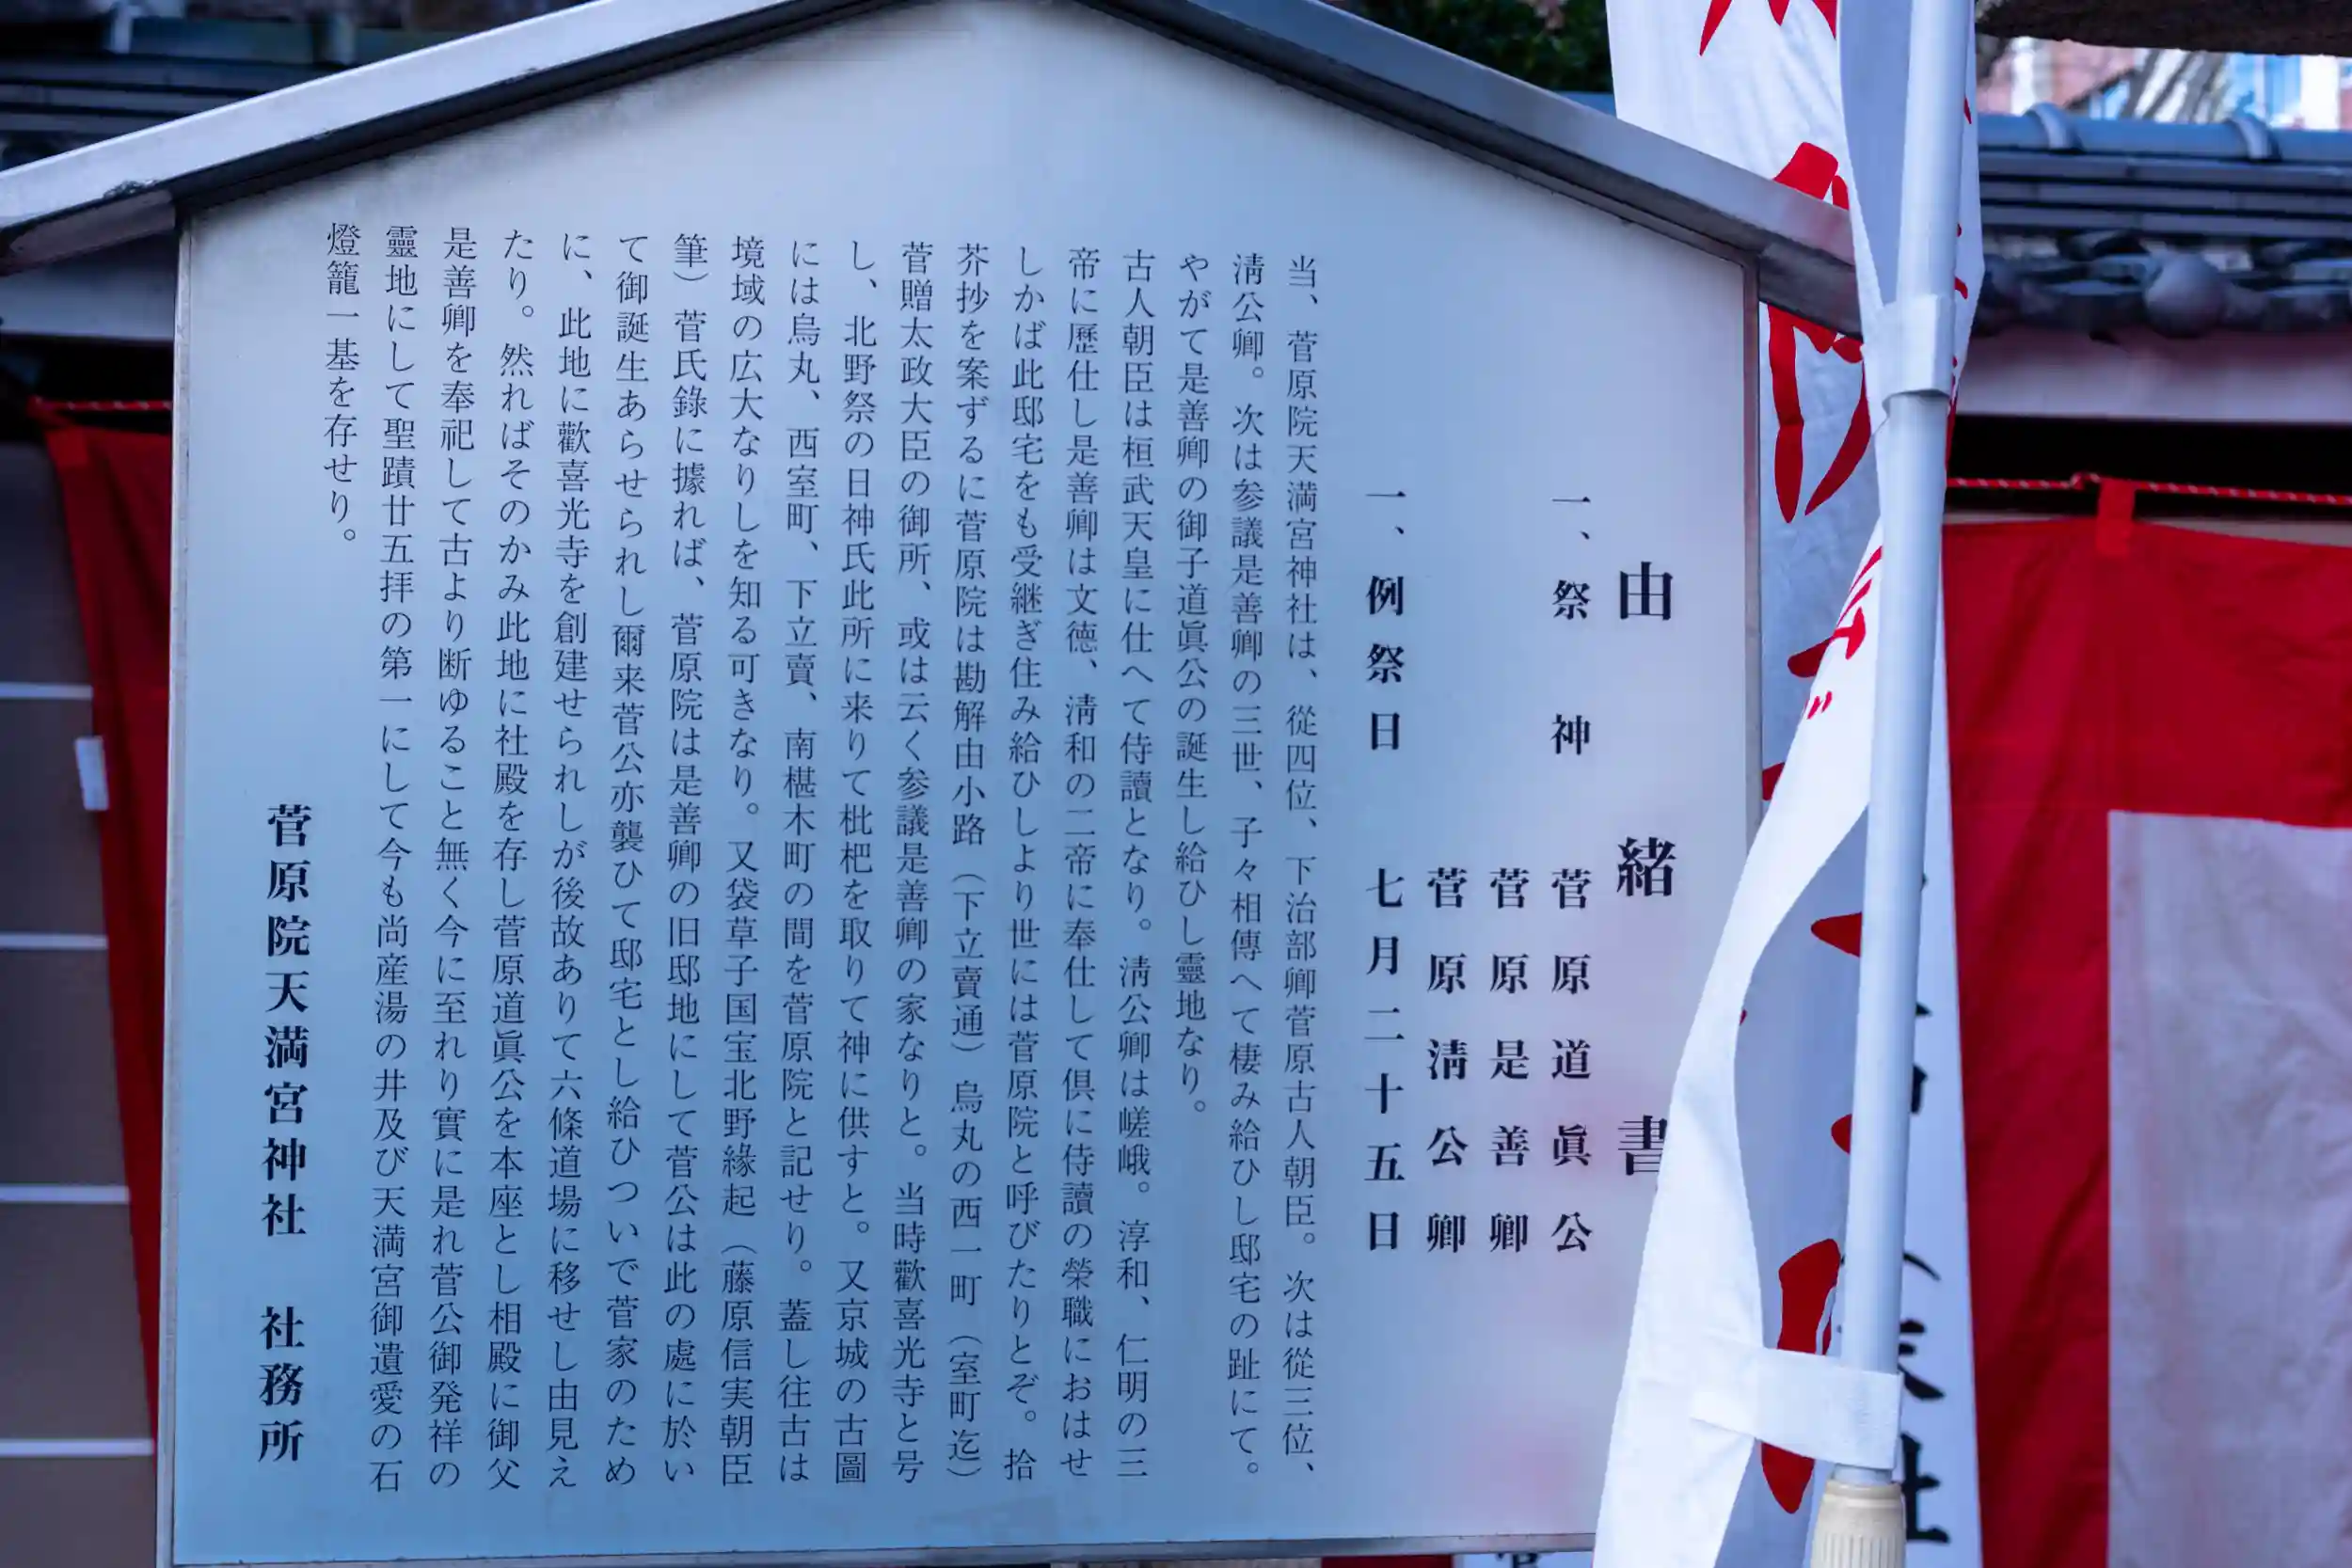 由緒書
一、祭神 菅原道眞公
菅原是善卿
菅原淸公卿
一、例祭日 七月二十五日
当、菅原院天満宮神社は、從四位、下治部卿菅原古人朝臣。次は從三位、
淸公卿。次は参議是善卿の三世、子々相傳へて棲み給ひし邸宅の趾にて。
やがて是善卿の御子道眞公の誕生し給ひし靈地なり。
古人朝臣は桓武天皇に仕へて侍讀となり。淸公卿は嵯峨。淳和、仁明の三
帝に歷仕し是善卿は文德、淸和の二帝に奉仕して俱に侍讀の榮職におはせ
しかば此邸宅をも受継ぎ住み給ひしより世には菅原院と呼びたりとぞ。拾
芥抄を案ずるに菅原院は勘解由小路（下立賣通）烏丸の西一町（室町迄）
菅贈太政大臣の御所、或は云く参議是善卿の家なりと。当時歡喜光寺と号
し、北野祭の日神氏此所に来りて枇杷を取りて神に供すと。又京城の古圖
には烏丸、西室町、下立賣、南椹木町の間を菅原院と記せり。蓋し往古は
境域の広大なりしを知る可きなり。又袋草子国宝北野緣起（藤原信実朝臣
筆）菅氏錄に據れば、菅原院は是善卿の旧邸地にして菅公は此の處に於い
て御誕生あらせられし爾来菅公亦襲ひて邸宅とし給ひついで菅家のため
に、此地に歡喜光寺を創建せられしが後故ありて六條道場に移せし由見え
たり。然ればそのかみ此地に社殿を存し菅原道眞公を本座とし相殿に御父
是善卿を奉祀して古より断ゆること無く今に至れり實に是れ菅公御発祥の
靈地にして聖蹟廿五拝の第一にして今も尚産湯の井及び天満宮御遺愛の石
燈籠一基を存せり。
菅原院天満宮神社 社務所